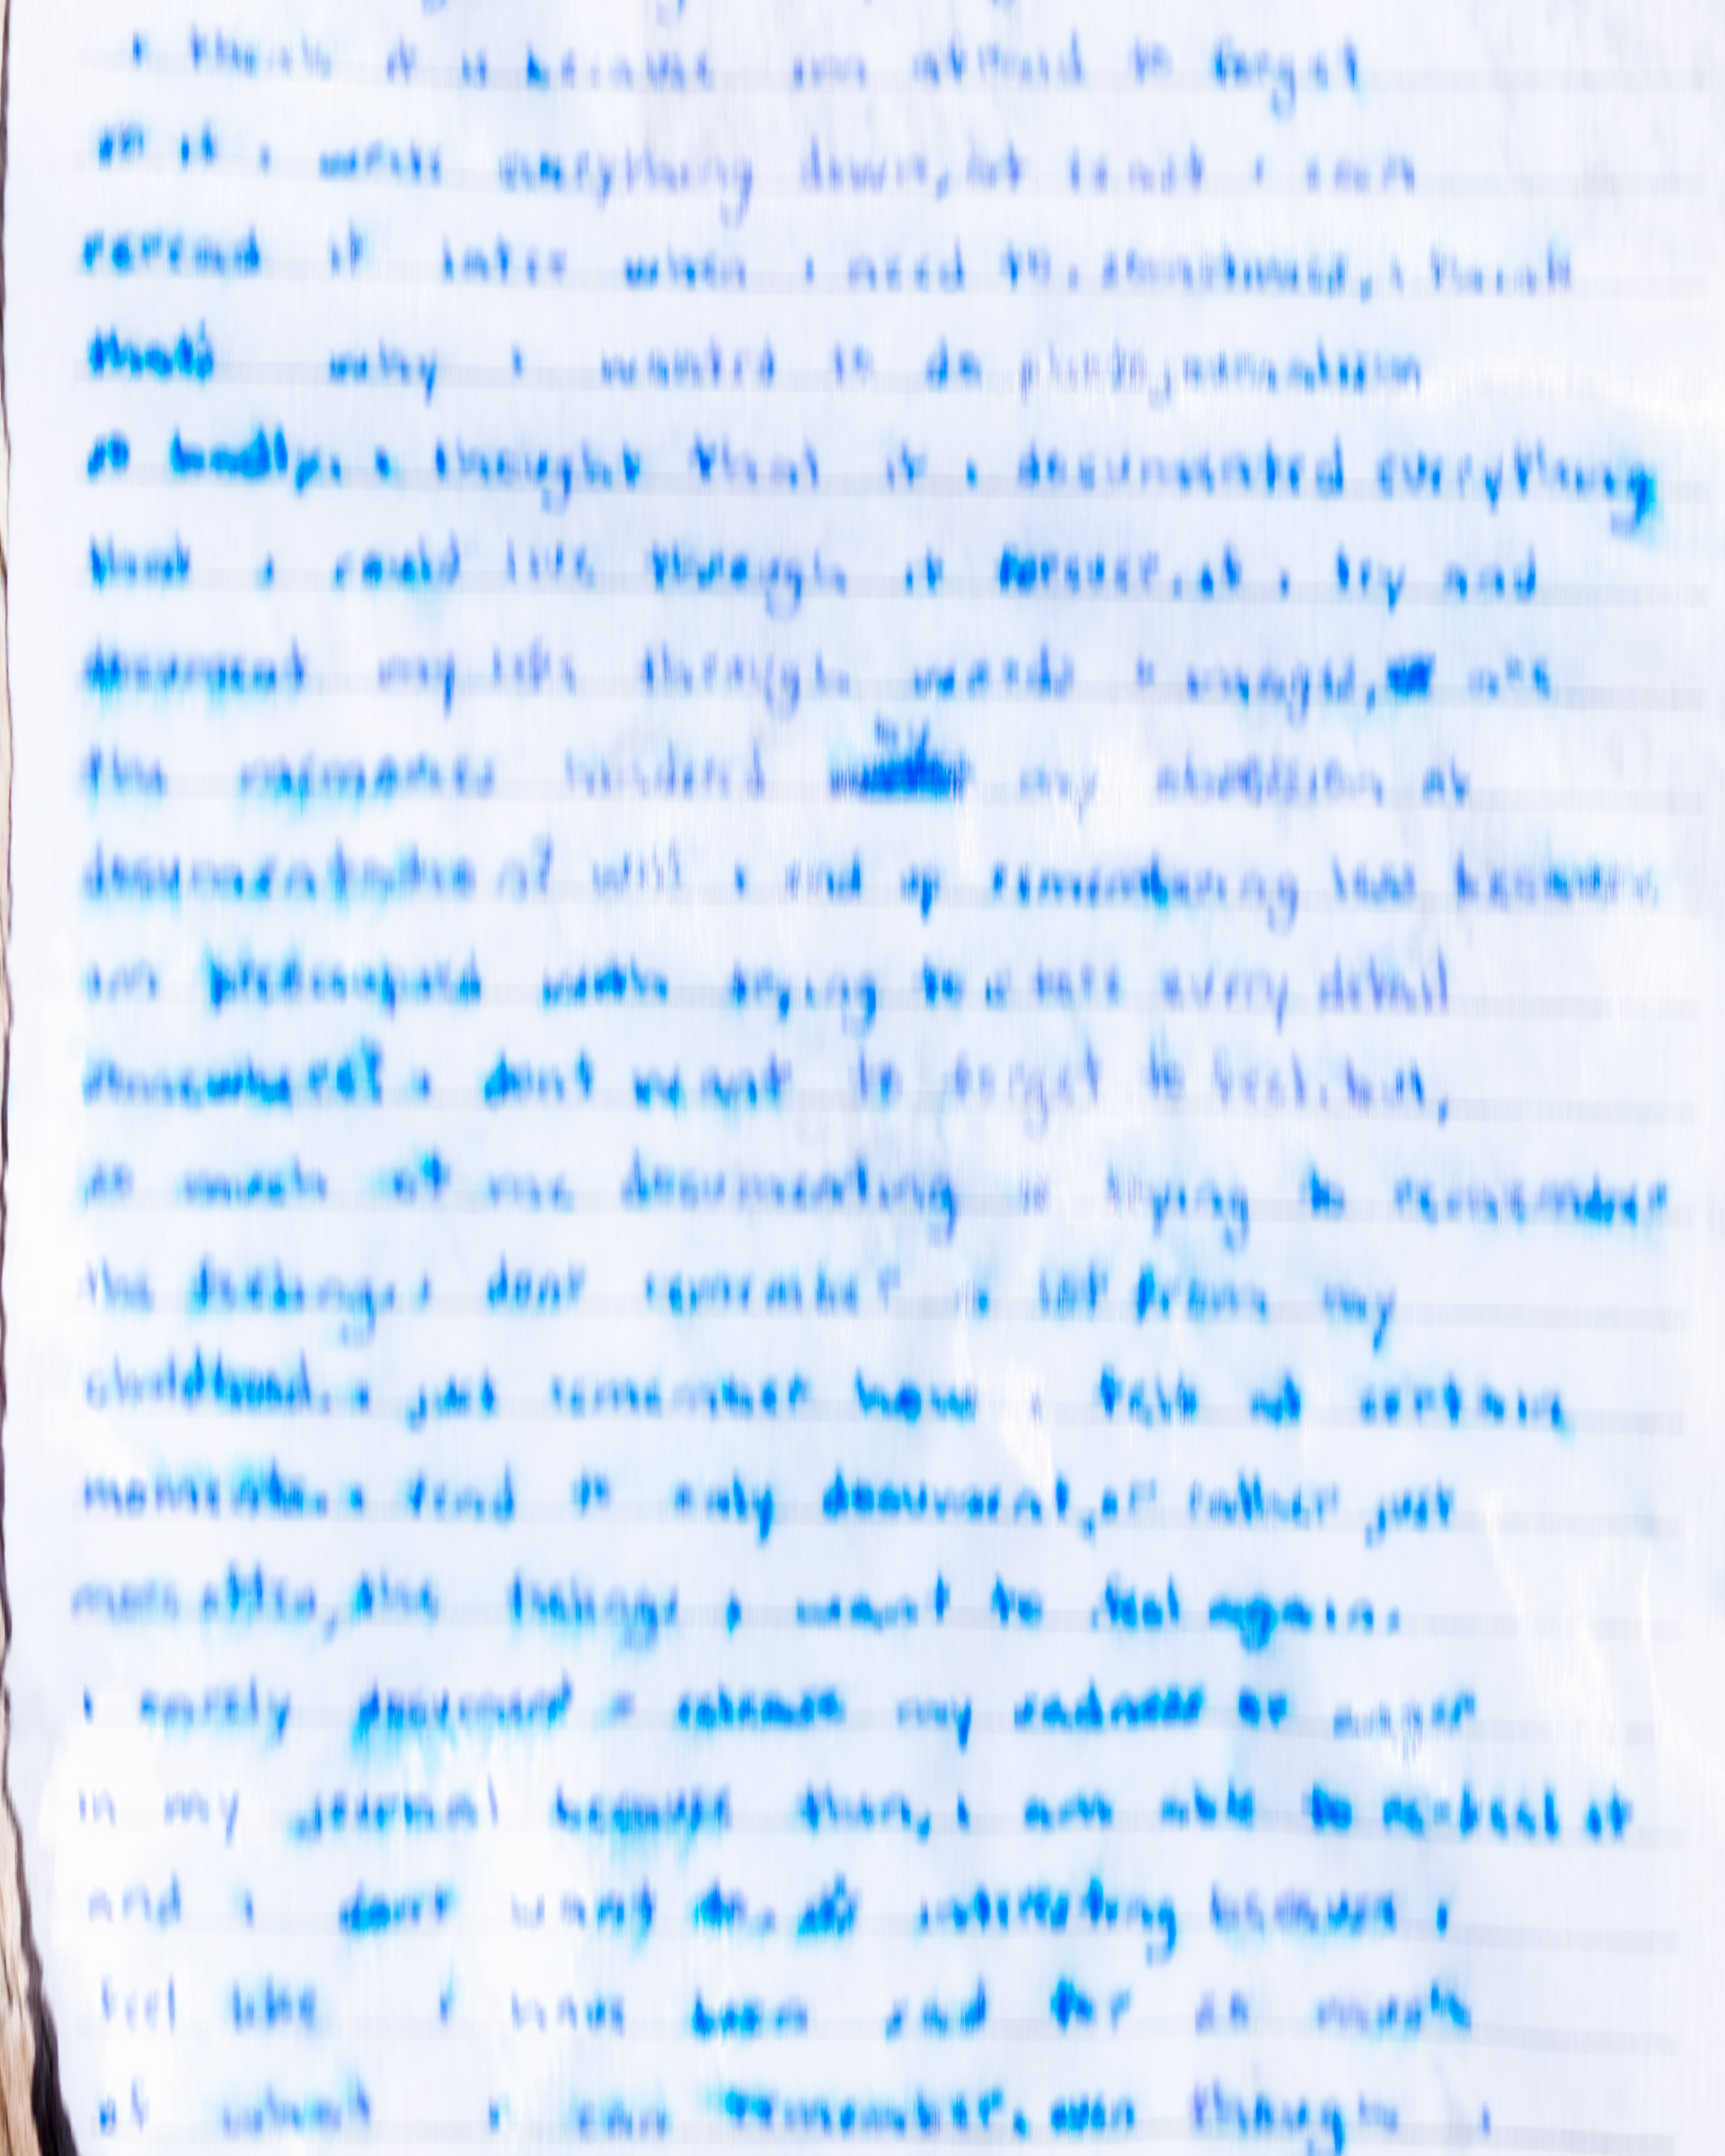 i think it is because im afraid to forget
or if i write everything down, at least i can
reread it later when i need to. sometimes, i think
that's why i wanted to do photojournalism
so badly. i thought that if i documented everything
that i could live through it forever. if i try and
document my life through words & images, are
the memories hindered by my obsession of
documentation? will i end up remembering less because
im preoccupied with trying to store every detail
somewhere? i dont want to forget to feel. but,
so much of me documenting is trying to remember
the feeling. i dont remember a lot from my
childhood. i just remember how i felt at certain
moments. i tend to only document, or rather just
more often, the feelings i want to feel again.
i rarely document & release my sadness or anger
in my journal because then, i am able to re-feel it
and i dont want to. its interesting because i
feel like i have been sad for so much
of what i can remember. even though i